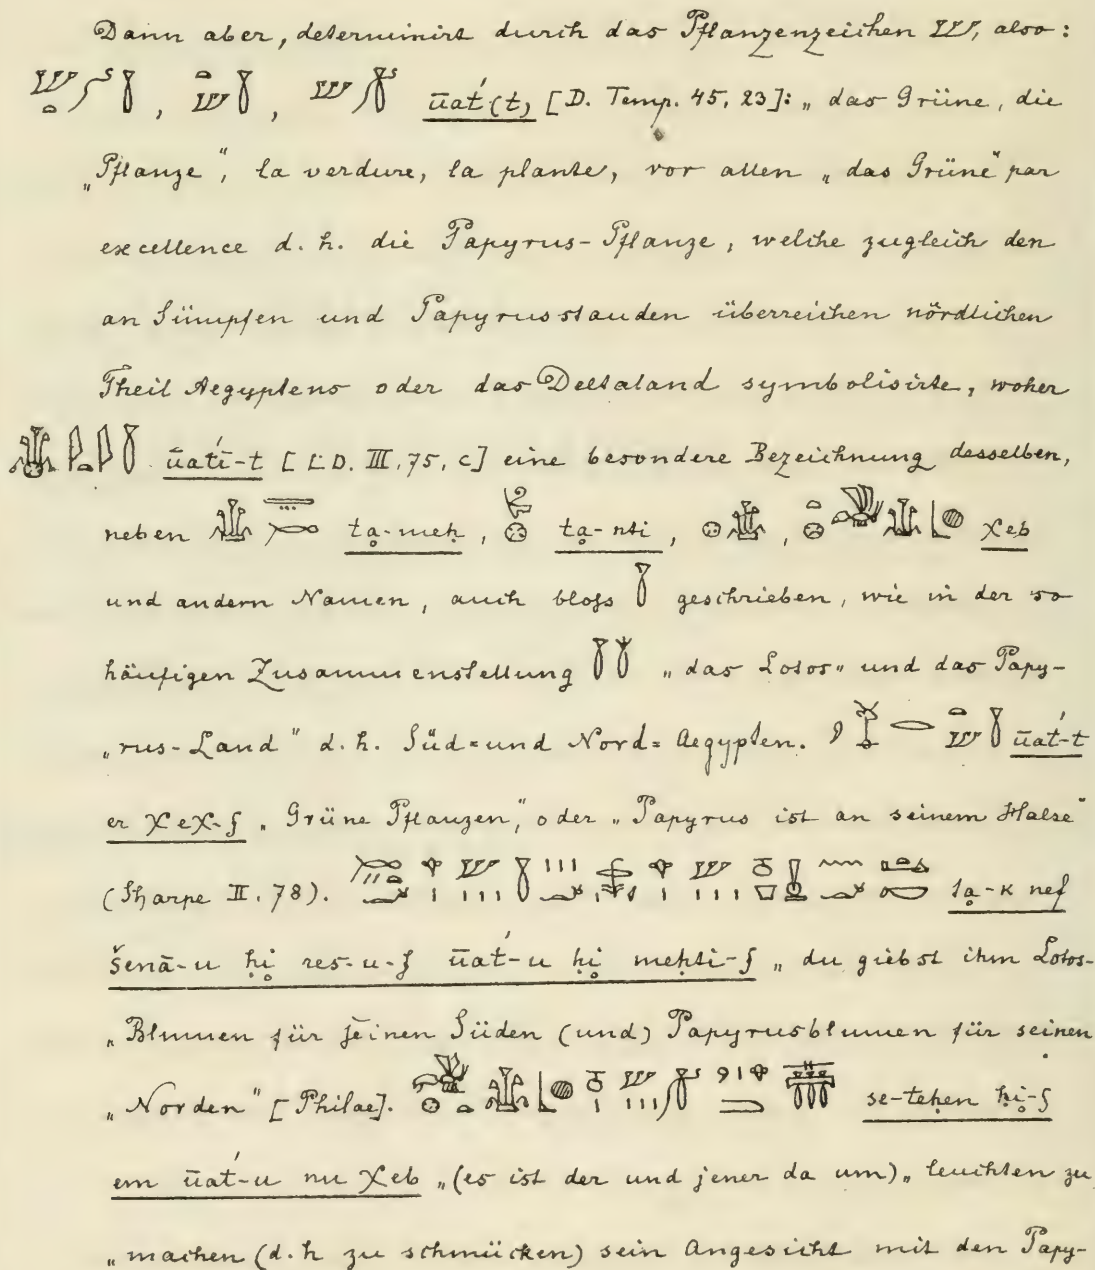 Dann aber, determinirt durch das Pflanzenzeichen 𓆰, also:
, , ūat́(t) [D. Temp. 45, 23]: „das Grüne, die
„Pflanze“, la verdure, la plante, vor allen „das Grüne“ par
excellence d. h. die Papyrus-Pflanze, welche zugleich den
an Sümpfen und Papyrusstauden überreichen nördlichen
Theil Aegyptens oder das Deltaland symbolisirte, woher
ūat́i-t [L.D. III, 75, c] eine besondere Bezeichnung desselben,
neben ta̤-meḥ, ta̤-nti, , χeb
und andern Namen, auch bloſs 𓇅 geschrieben, wie in der so
häufigen Zusammenstellung „das Lotos„ und das Papy-
„rus-Land“ d. h. Süd= und Nord= Aegypten. ūat́-t
er χeχ-f „Grüne Pflanzen“, oder „Papyrus ist an seinem Halse“
(Sharpe II. 78). ta̤-k nef
šenā-u ḥi̤ res-u-f ūat́-u ḥi̤ meḥti-f „du giebst ihm Lotos-
„Blumen für seinen Süden (und) Papyrusblumen für seinen
„Norden“ [Philae]. se-teḥen ḥi̤-f
em ūat́-u nu χeb „(es ist der und jener da um) „leuchten zu
„machen (d. h zu schmücken) sein Angesicht mit den Papy-